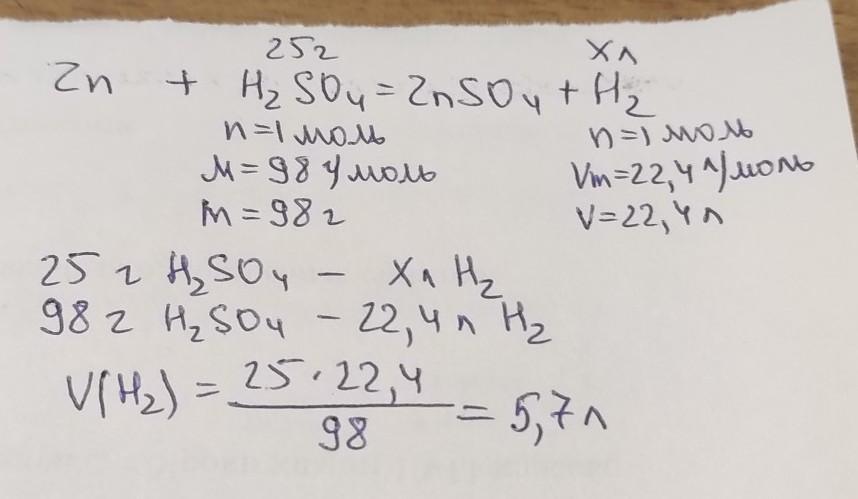 25г хл
Zn + H₂SO₄ = ZnSO₄ + H₂
n=1 моль n=1 моль
M=98 г/моль Vm=22,4 л/моль
m=98г V=22,4л
25 г H₂SO₄ – хл H₂
98 г H₂SO₄ – 22,4 л H₂
V(H₂) = 25·22,4 / 98 = 5,7л